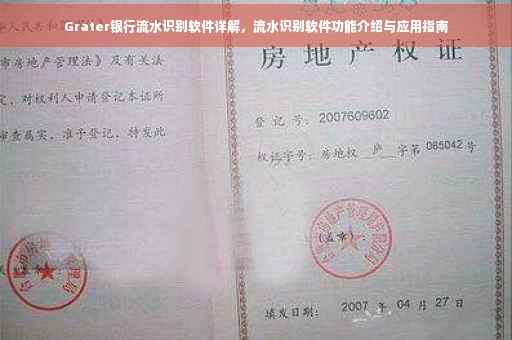 Grater银行流水识别软件详解，流水识别软件功能介绍与应用指南
华人民共和国
市房地产管理法》及有关法
定，对权利人申请登记本证所
审查属实，准予登记，特发此
房地产权证
登记号：2007609602
权证字号：房地权 庐 字第 065042 号
(盖章)：
填发日期： 2007 年 04 月 27 日